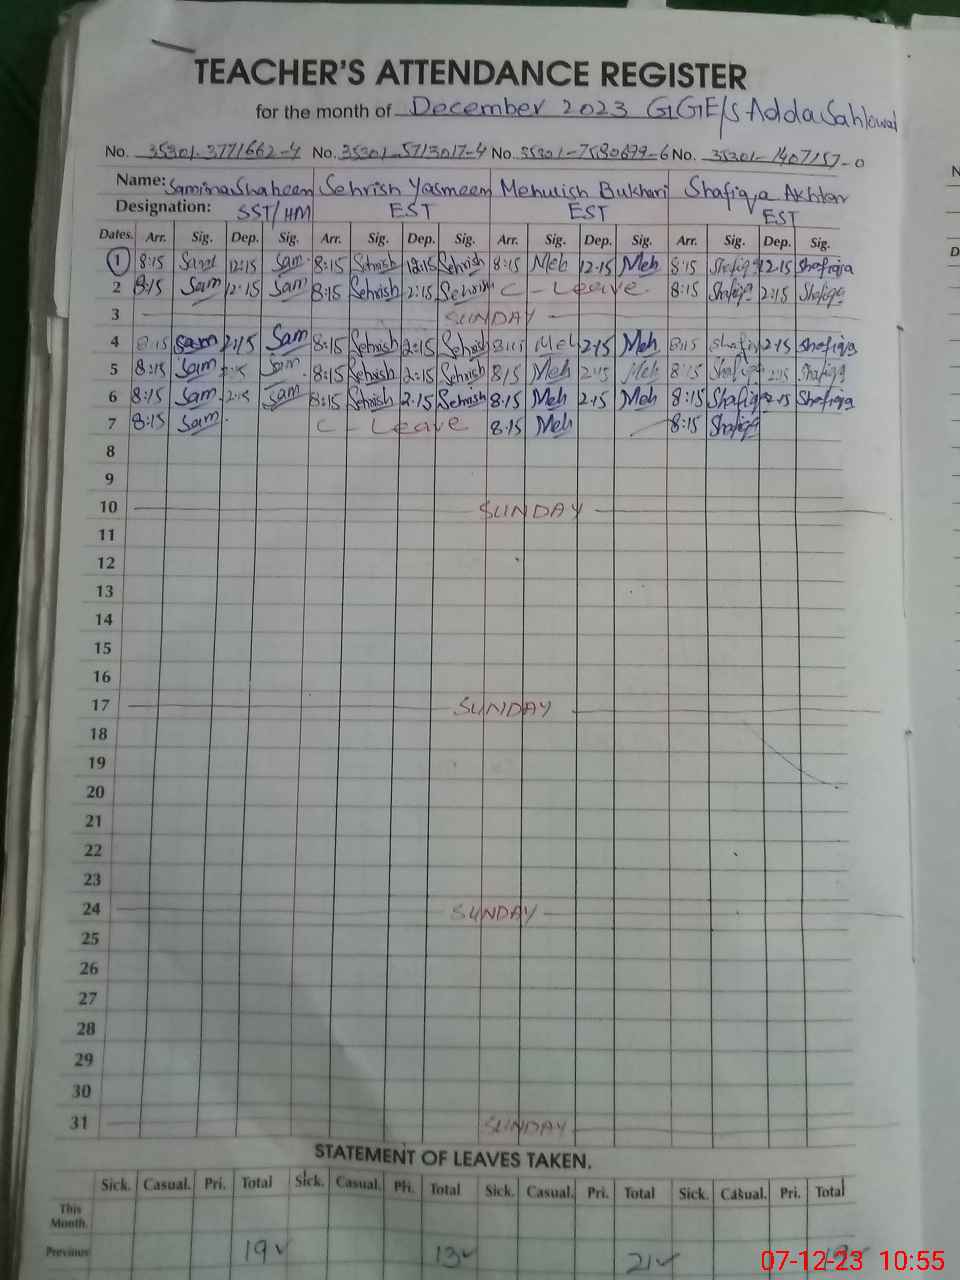 TEACHER'S ATTENDANCE REGISTER
for the month of December 2023 GGE/S Adda Sahlowal
No. 35301-3771662-4 No. 35301-5713017-4 No. 35301-7580679-6 No. 35301-1407157-0
Name: Samina Shaheen Sehrish Yasmeen Mehwish Bukhari Shafiqa Akhter
Designation: SST/HM EST EST EST
Dates. Arr. Sig. Dep. Sig. Arr. Sig. Dep. Sig. Arr. Sig. Dep. Sig. Arr. Sig. Dep. Sig.
1 8:15 Sam 12:15 Sam 8:15 Sehrish 12:15 Sehrish 8:15 Meh 12.15 Meh 8:15 Shafiqa 12.15 Shafiqa
2 8:15 Sam 2:15 Sam 8:15 Sehrish 2:15 Sehrish C - Leave 8:15 Shafiqa 2:15 Shafiqa
3 SUNDAY
4 8:15 Sam 2:15 Sam 8:15 Sehrish 2:15 Sehrish 8:15 Meh 2:15 Meh 8:15 Shafiqa 2:15 Shafiqa
5 8:15 Sam 2:15 Sam 8:15 Sehrish 2:15 Sehrish 8:15 Meh 2:15 Meh 8:15 Shafiqa 2:15 Shafiqa
6 8:15 Sam 2:15 Sam 8:15 Sehrish 2.15 Sehrish 8.15 Meh 2.15 Meh 8:15 Shafiqa 2.15 Shafiqa
7 8:15 Sam C - Leave 8:15 Meh 8:15 Shafiqa
8
9
10 SUNDAY
11
12
13
14
15
16
17 SUNDAY
18
19
20
21
22
23
24 SUNDAY
25
26
27
28
29
30
31 SUNDAY
STATEMENT OF LEAVES TAKEN.
Sick. Casual. Pri. Total Sick. Casual. Pri. Total Sick. Casual. Pri. Total Sick. Casual. Pri. Total
This
Month.
Previous 19 13 21
07-12-23 10:55